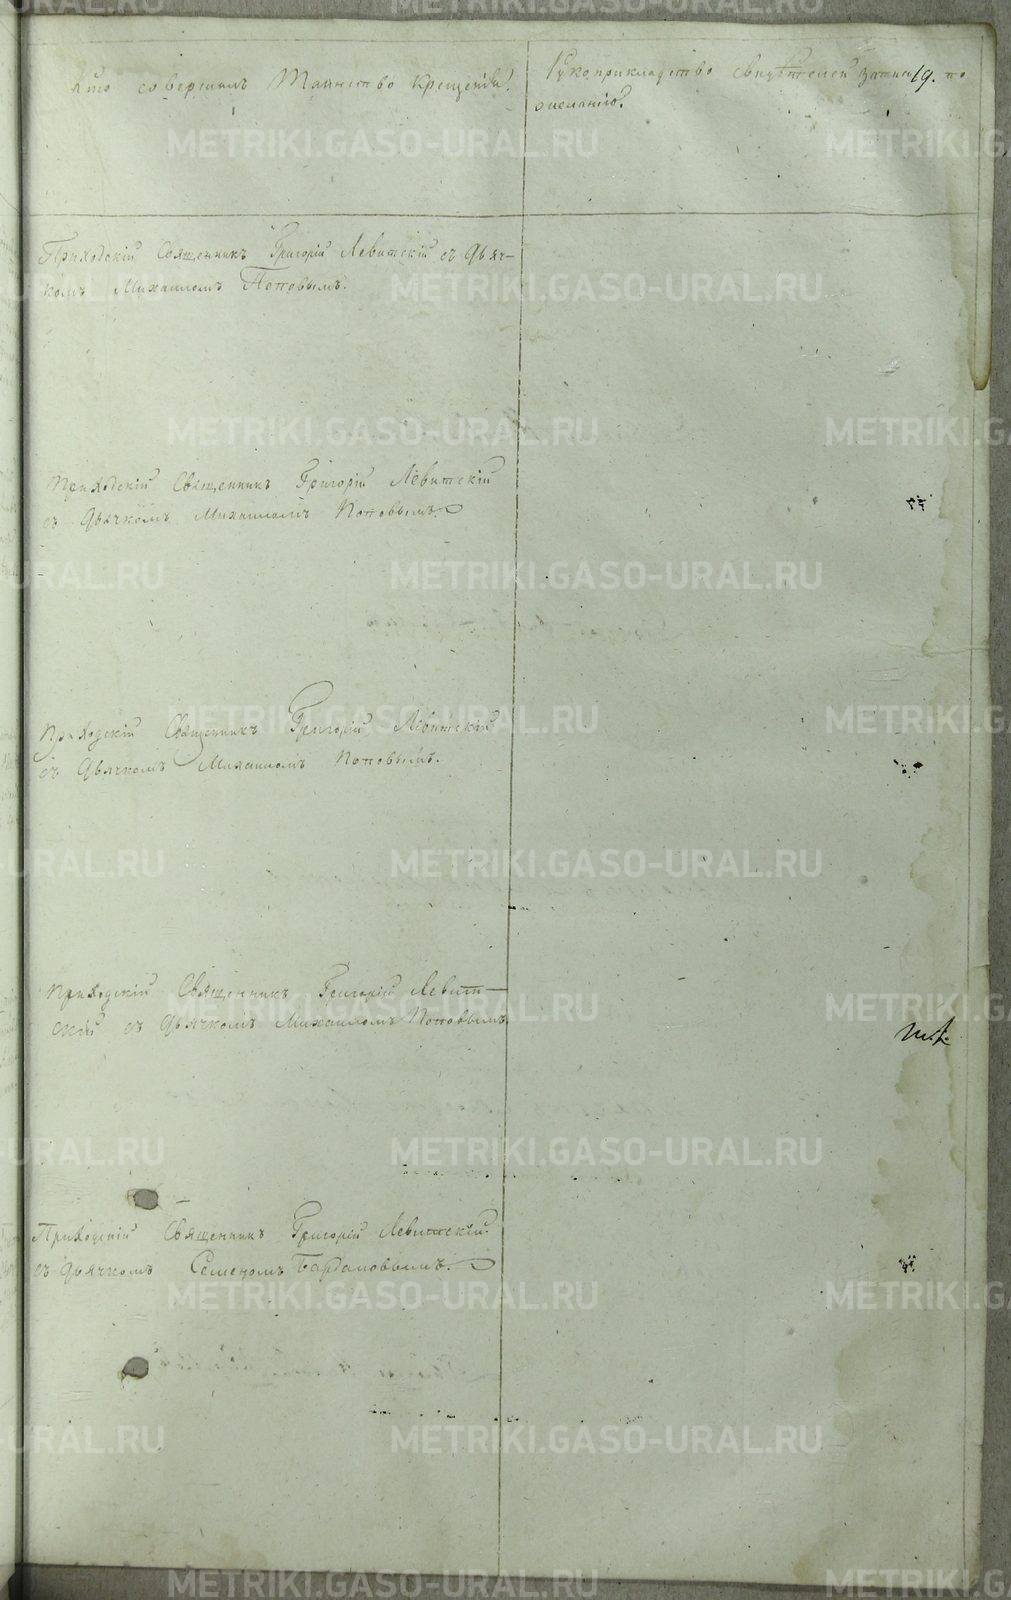 Кто совершалъ Таинство Крещенія?
Рукоприкладство свидѣтелей записи по
желанію?
19.
Приходскій Священникъ Григорій Левитскій съ Дьяч-
комъ Михаиломъ Поповымъ.
Приходскій Священникъ Григорій Левитскій
съ Дьячкомъ Михаиломъ Поповымъ.
Приходскій Священникъ Григорій Левитскій
съ Дьячкомъ Михаиломъ Поповымъ.
Приходскій Священникъ Григорій Левит-
скій съ Дьячкомъ Михаиломъ Поповымъ.
Приходскій Священникъ Григорій Левитскій
съ Дьячкомъ Семеномъ
METRIKI.GASO-URAL.RU